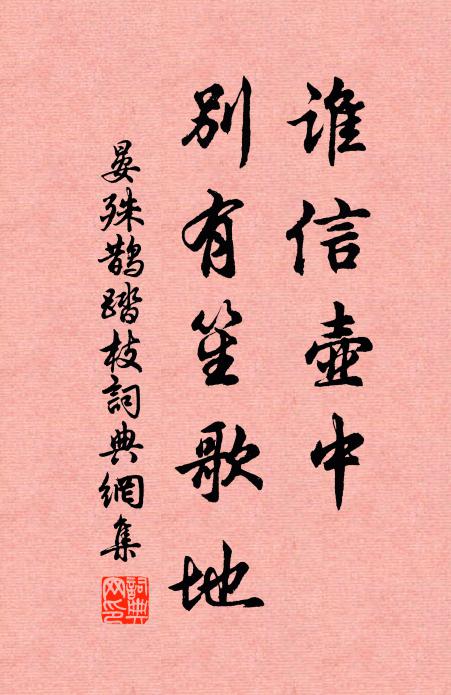 誰信壺中
別有笙歌地
晏殊鵲踏枝詞典網集
詞典網印